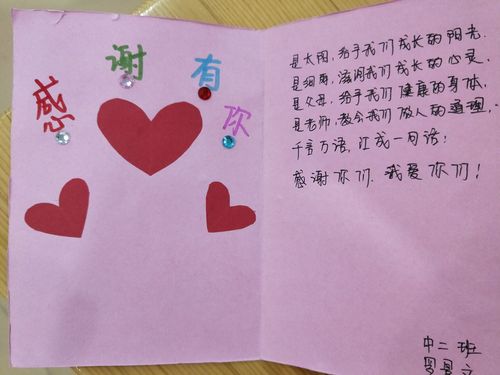 感谢有你
是太阳,给予我们成长的阳光.
是细雨,滋润我们成长的心灵.
是父母,给予我们健康的身体.
是老师,教会我们做人的道理.
千言万语,汇成一句话:
感谢你们.我爱你们!
中二班